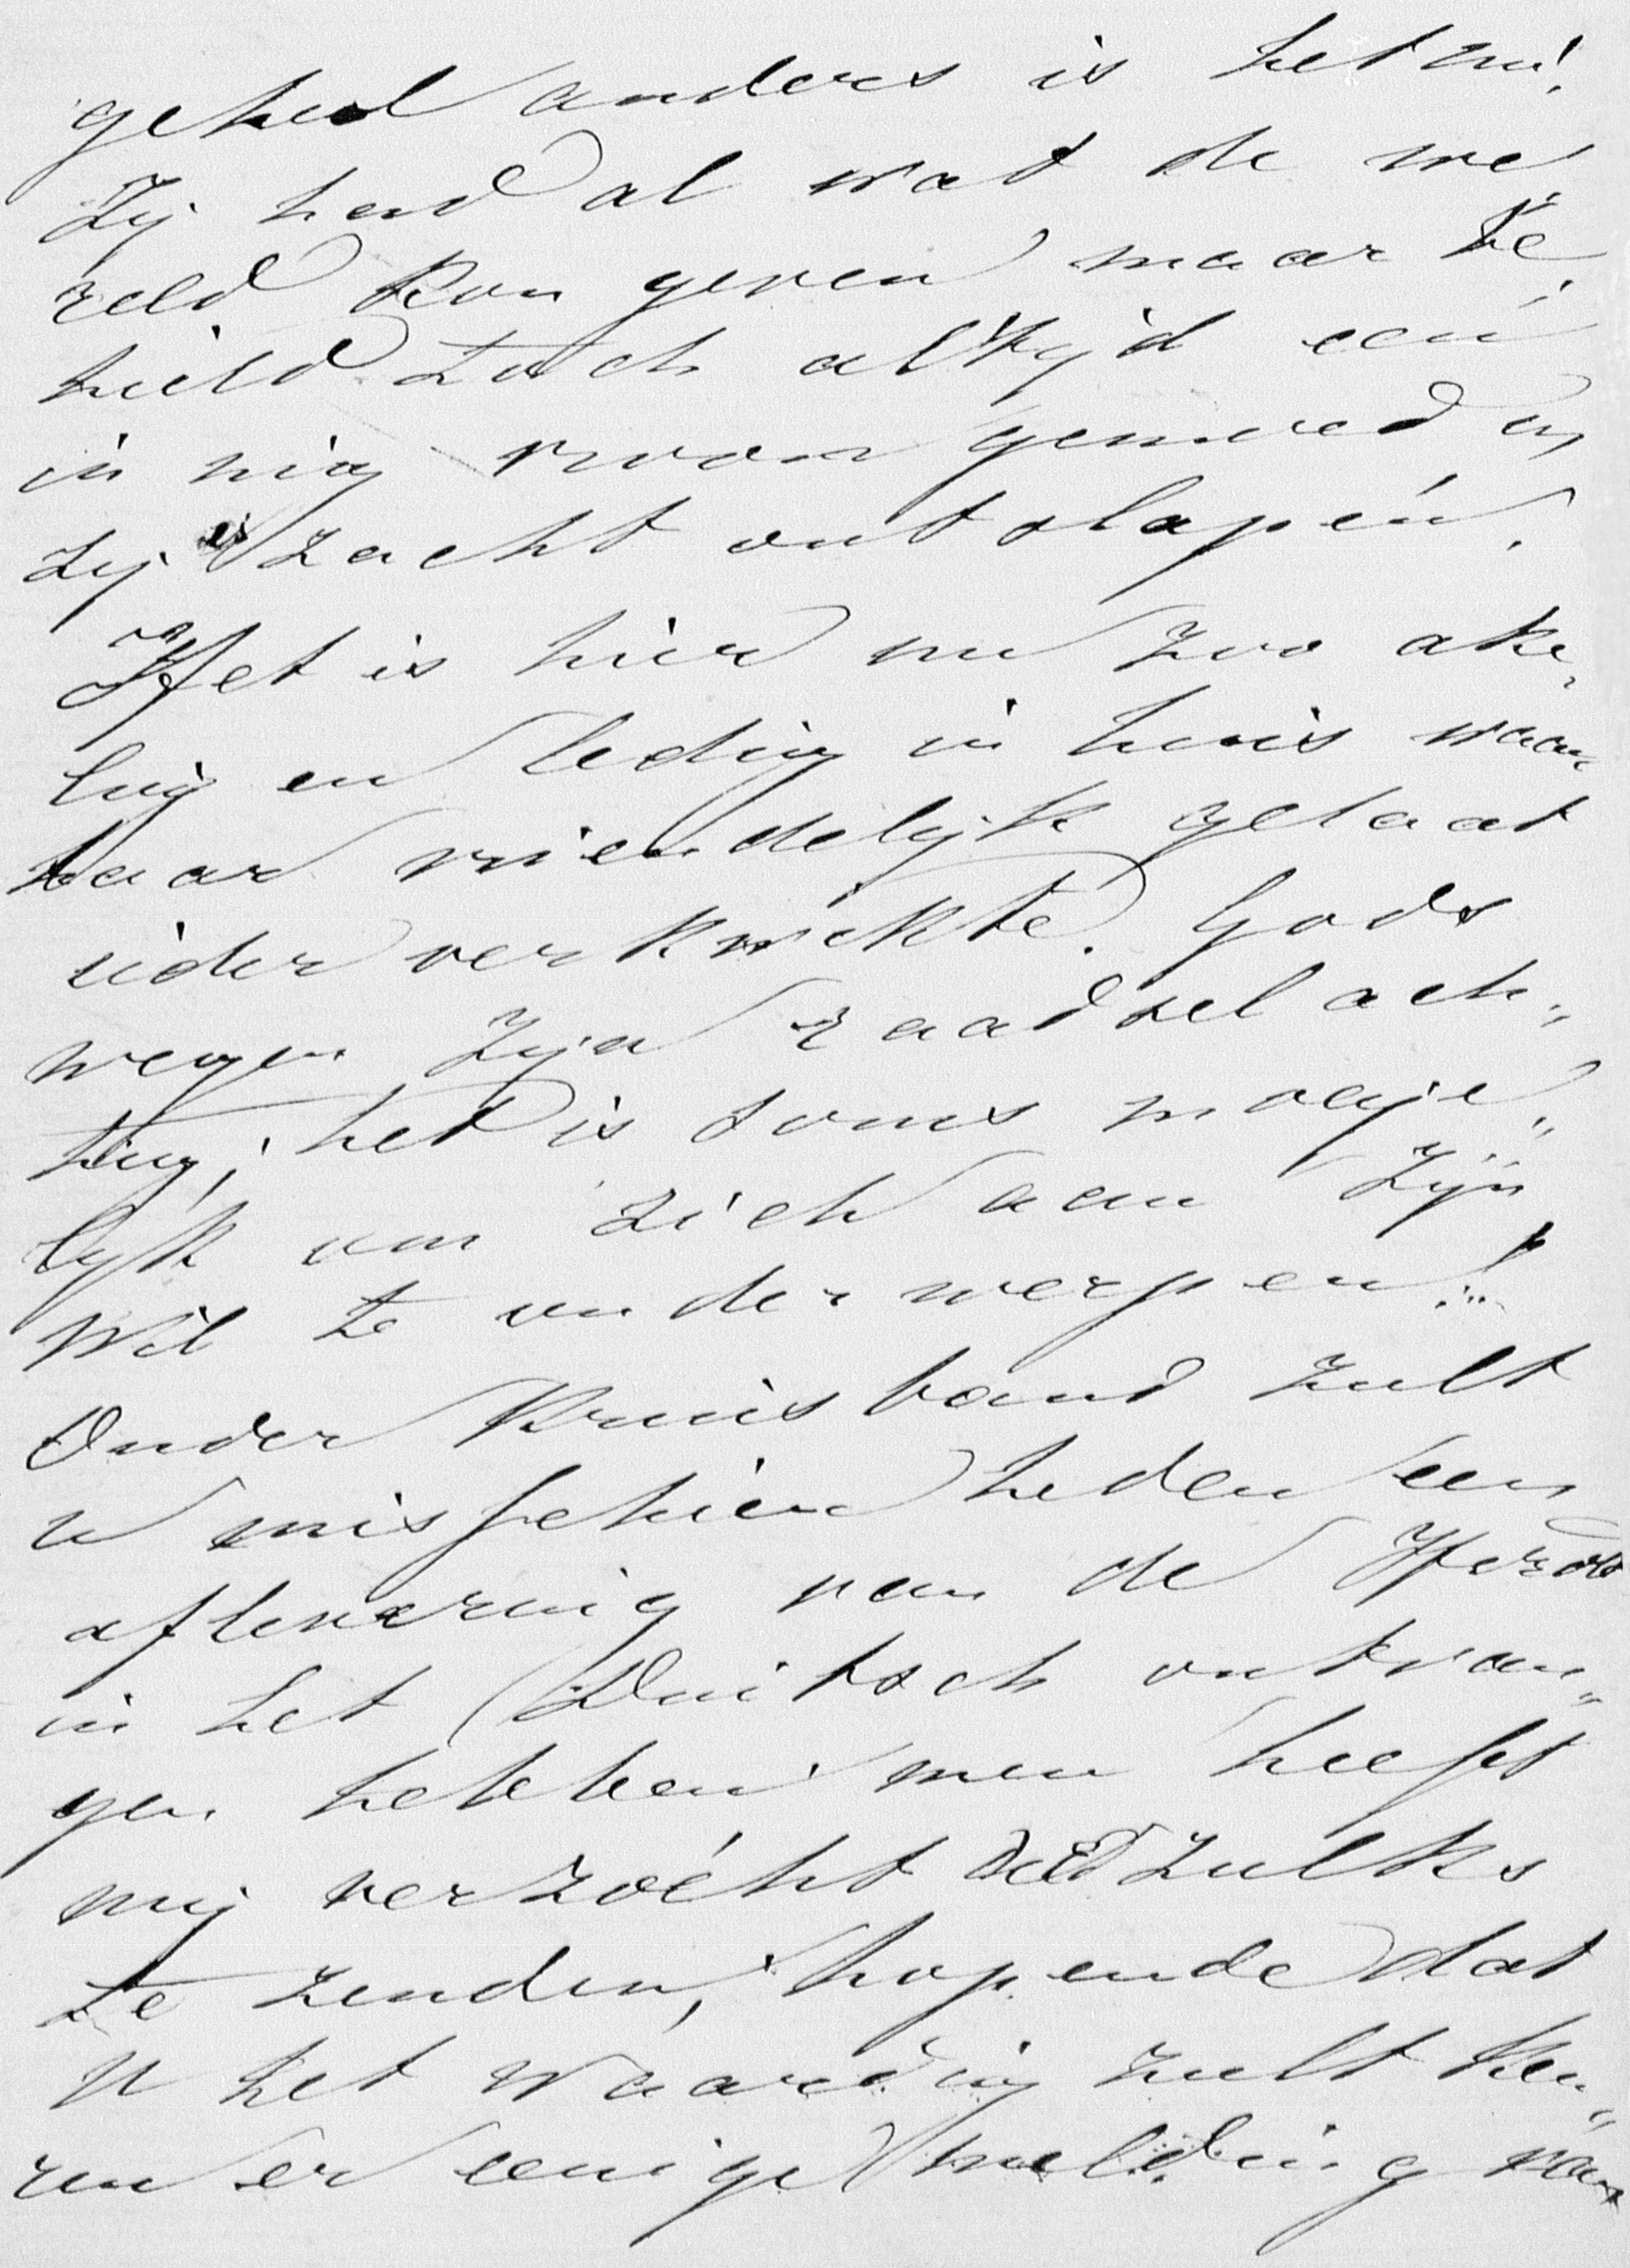 geheel anders is het nu!
Zij had al wat de we„
reld kon geven maar be„
hield toch altijd een
innig vroom gemoed en
zij is zacht ontslapen.
Het is hier nu zoo ake„
lig en ledig in huis waar
haar vriendelijk gelaat
ieder verkwikte. Gods
wegen zijn raadselach„
tig; het is soms moeije„
lijk om zich aan Zijn
Wil te onderwerpen!..
Onder Kruisband zult
u misschien heden een
aflevering van de
in het Duitsch ontvan„
gen hebben men heeft
mij verzocht UEd zulks
te zenden, hopende dat
U het waardig zult keu„
ren er eenige melding van